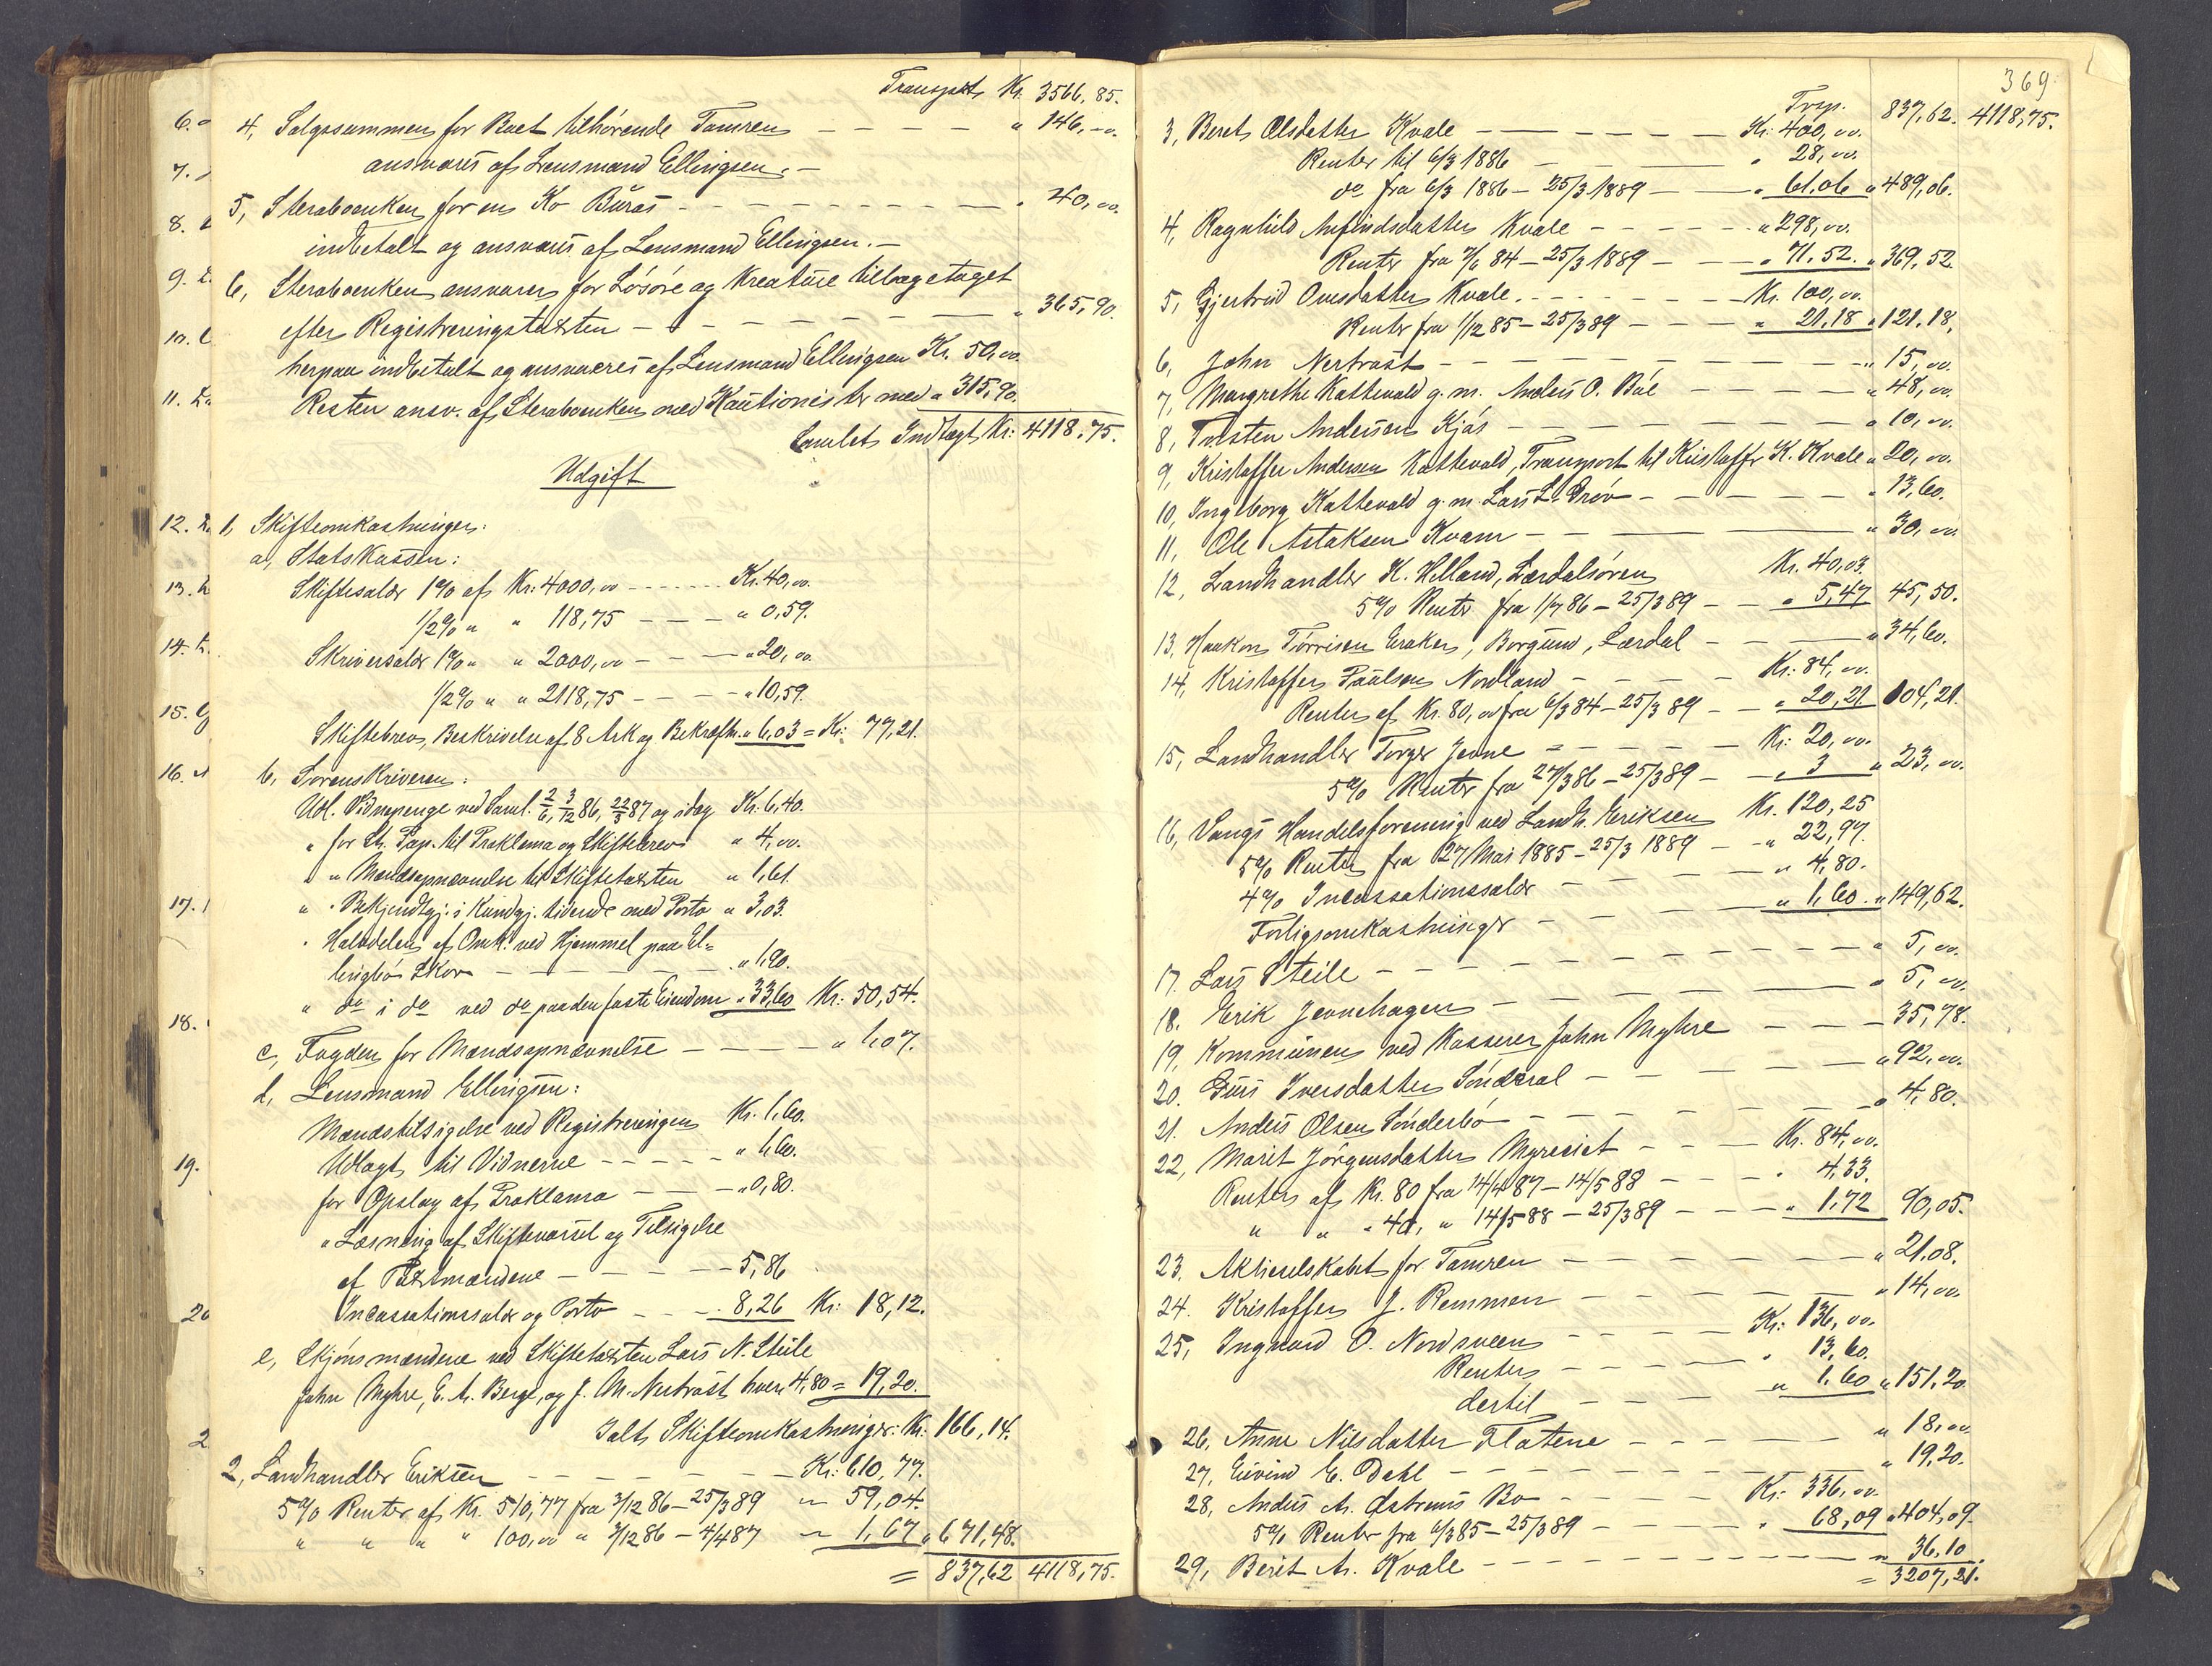 Transport Kr. 3566,85.
4, Salgssummen for Boet tilhørende Tømren — — — — " 146,00.
ansvares af Lensmand Ellingsen. —
5, Sterboenken for en Ko Buras — — — — " 40,00.
indbetalt og ansvares af Lensmand Ellingsen. —
6, Sterboenken ansvarer for Løsøre og Kreature tilbagetaget
efter Registreringstaxten — — — — " 365,90.
herpaa indbetalt og ansvares af Lensmand Ellingsen Kr. 50,00.
Resten ansv. af Sterboenken med Kautionister med " 315,90.
Samlet Indtægt Kr: 4118.75.
Udgift
1, Skifteomkostninger:
a, Statskassen:
Skiftesalær 1% af Kr: 4000,00 — — Kr. 40,00.
1/2% " " 118,75 — — — " 0,59.
Skriversalær 1% " " 2000,00 — — — " 20,00.
1/2% " " 2118,75 — — — " 10,59.
Skiftebrev, Beskrivelse af 8 Ark og Bekræftn. " 6,03 = Kr: 77,21.
b, Sorenskriveren:
Udl. Vidnepenge ved Saml. 2/6, 3/12 86, 22/3 87 og idag Kr. 6,40.
" for St. Pap. til Proklama og Skiftebrev " 4,00.
" " Mændsopnævnelse til Skiftetaxten " 1,61.
" " Bekjendtgj. i Kundgj. tidende med Porto " 3,03.
" Halvdelen af Omk. ved Hjemmel paa El=
lingbø Skov — — — — " 1,90.
" do i do ved do paa den faste Eiendom " 33,60 Kr: 50,54.
c, Fogden for Mændsopnævnelse — — — " 1,07.
d, Lensmand Ellingsen:
Mændstilsigelse ved Registreringen Kr. 1,60.
Udlagt til Vidnerne — — — — " 1,60.
for Opslag af Proklama — — — " 0,80.
" Læsning af Skiftevarsel og Tilsigelse
af Taxtmændene — — — — 5,86
Incassationssalær og Porto — — 8,26 Kr: 18,12.
e, Skjønsmændene ved Skiftetaxten Lars N. Steile
John Myhre, E. A. Berge, og J. M. Nertrøst hver 4,80 = 19,20.
Ialt Skifteomkostninger: Kr: 166,14.
2, Landhandler Eriksen — — — — Kr: 610,77.
5% Renter af Kr. 510,77 fra 3/12 86 – 25/3 89 " 59,04.
" " " " 100,00 " 3/12 86 – 4/4 87 " 1,67 " 671,48.
= 837,62 4118,75.
6.
7.
8.
9.
10.
11.
12.
13.
14.
15.
16.
17.
18.
19.
20
2
369
Trsp. 837,62. 4118,75.
3, Beret Olsdatter Kvale — — — — Kr: 400,00.
Renter til 6/3 1886 — — — " 28,00.
do fra 6/3 1886 – 25/3 1889 — — " 61,06 " 489,06.
4, Ragnhild Arfindsdatter Kvale — — — " 298,00.
Renter fra 7/6 84 – 25/3 1889 — — " 71.52. " 369,52.
5, Gjertrud Ouesdatter Kvale. — — — Kr. 100,00.
Renter fra 1/12 85 – 25/3 89 — — — " 21,18 " 121,18,
6, John Nertrøst — — — — " 15,00.
7, Margrethe Kattevold g. m. Anders O. Bøe — — — " 48,00.
8, Torsten Andersen Kjøs — — — — " 10,00.
9, Kristoffer Andersen Kattevold, Transport til Kristoffr K. Kvale " 20,00.
10, Ingeborg Kattevold g. m. Lars L. Drøv — — — " 13,60.
11, Ole Aslaksen Kvam — — — — " 30,00.
12, Landhandler K. Helland, Lærdalsøren Kr. 40,03.
5% Renter fra 1/7 86 – 25/3 89 — — " 5,47 45,50.
13, Haakon Torrisen Eraker, Borgund, Lærdal — — — " 34,60.
14, Kristoffer Paulsen Nordland — — — Kr: 84,00.
Renter af Kr. 80,00 fra 6/3 84 – 25/3 89 — — " 20,21 104,21.
15, Landhandler Torger Jevne — — — Kr: 20,00.
5% Renter fra 27/3 86 – 25/3 89 — — " 3 " 23,00.
16, Vangs Handelsforening ved Landh. Eriksen Kr. 120,25
5% Renter fra 27 Mai 1885 – 25/3 1889 — " 22,97.
4% Incassationssalær — — — " 4,80.
Forligsomkostninger — — — " 1,60. " 149,62.
17. Lars Steile — — — — " 5,00.
18. Erik Jevnehagen — — — — " 5,00.
19, Kommunen ved Kasserer John Myhre — — — 35,78.
20. Guri Iversdatter Sønderal — — — " 92,00.
21. Anders Olsen Sønderbø — — — — " 4,80.
22, Marit Jørgensdatter Myresiet — — — Kr. 84,00.
Renter af Kr. 80 fra 14/4 87 – 14/5 88 — — " 4,33.
" " " 40, " 14/5 88 – 25/3 89 — — — " 1,72 90,05.
23. Aktieselskabet for Tømren — — — — " 21,08.
24. Kristoffer J. Remmen — — — — " 14,00.
25, Ingvard O. Nordsveen — — — Kr: 136,00.
Renter — — — " 13,60.
dertil — — — " 1,60 " 151,20
26, Anne Nilsdatter Flatene — — — " 18,00
27, Eivind E. Dahl — — — — " 19,20.
28, Anders A. Østrems Bo — — — Kr: 336,00.
5% Renter fra 6/3 85 – 25/3 89 — — — " 68,09 " 404,09.
29, Berit A. Kvale — — — — " 36,10
= 3207,21.